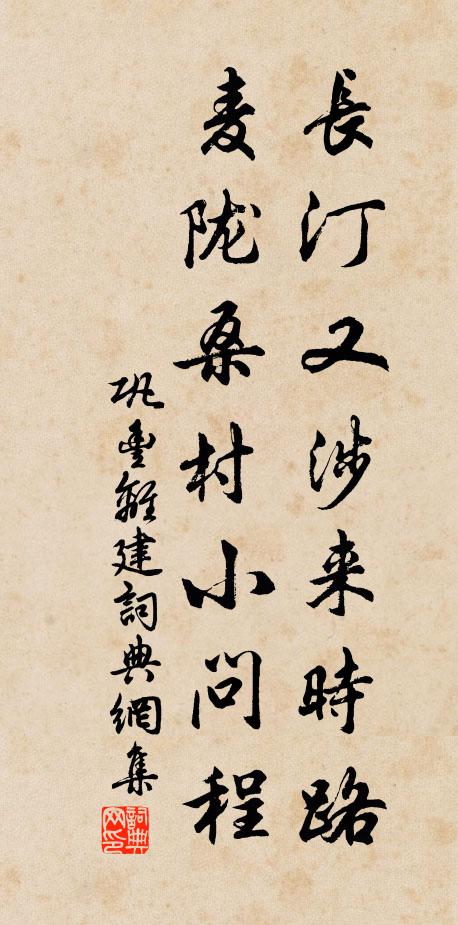 長汀又涉来時路
麦陇桑村小問程
巩豊離建詞典網集
詞典網印